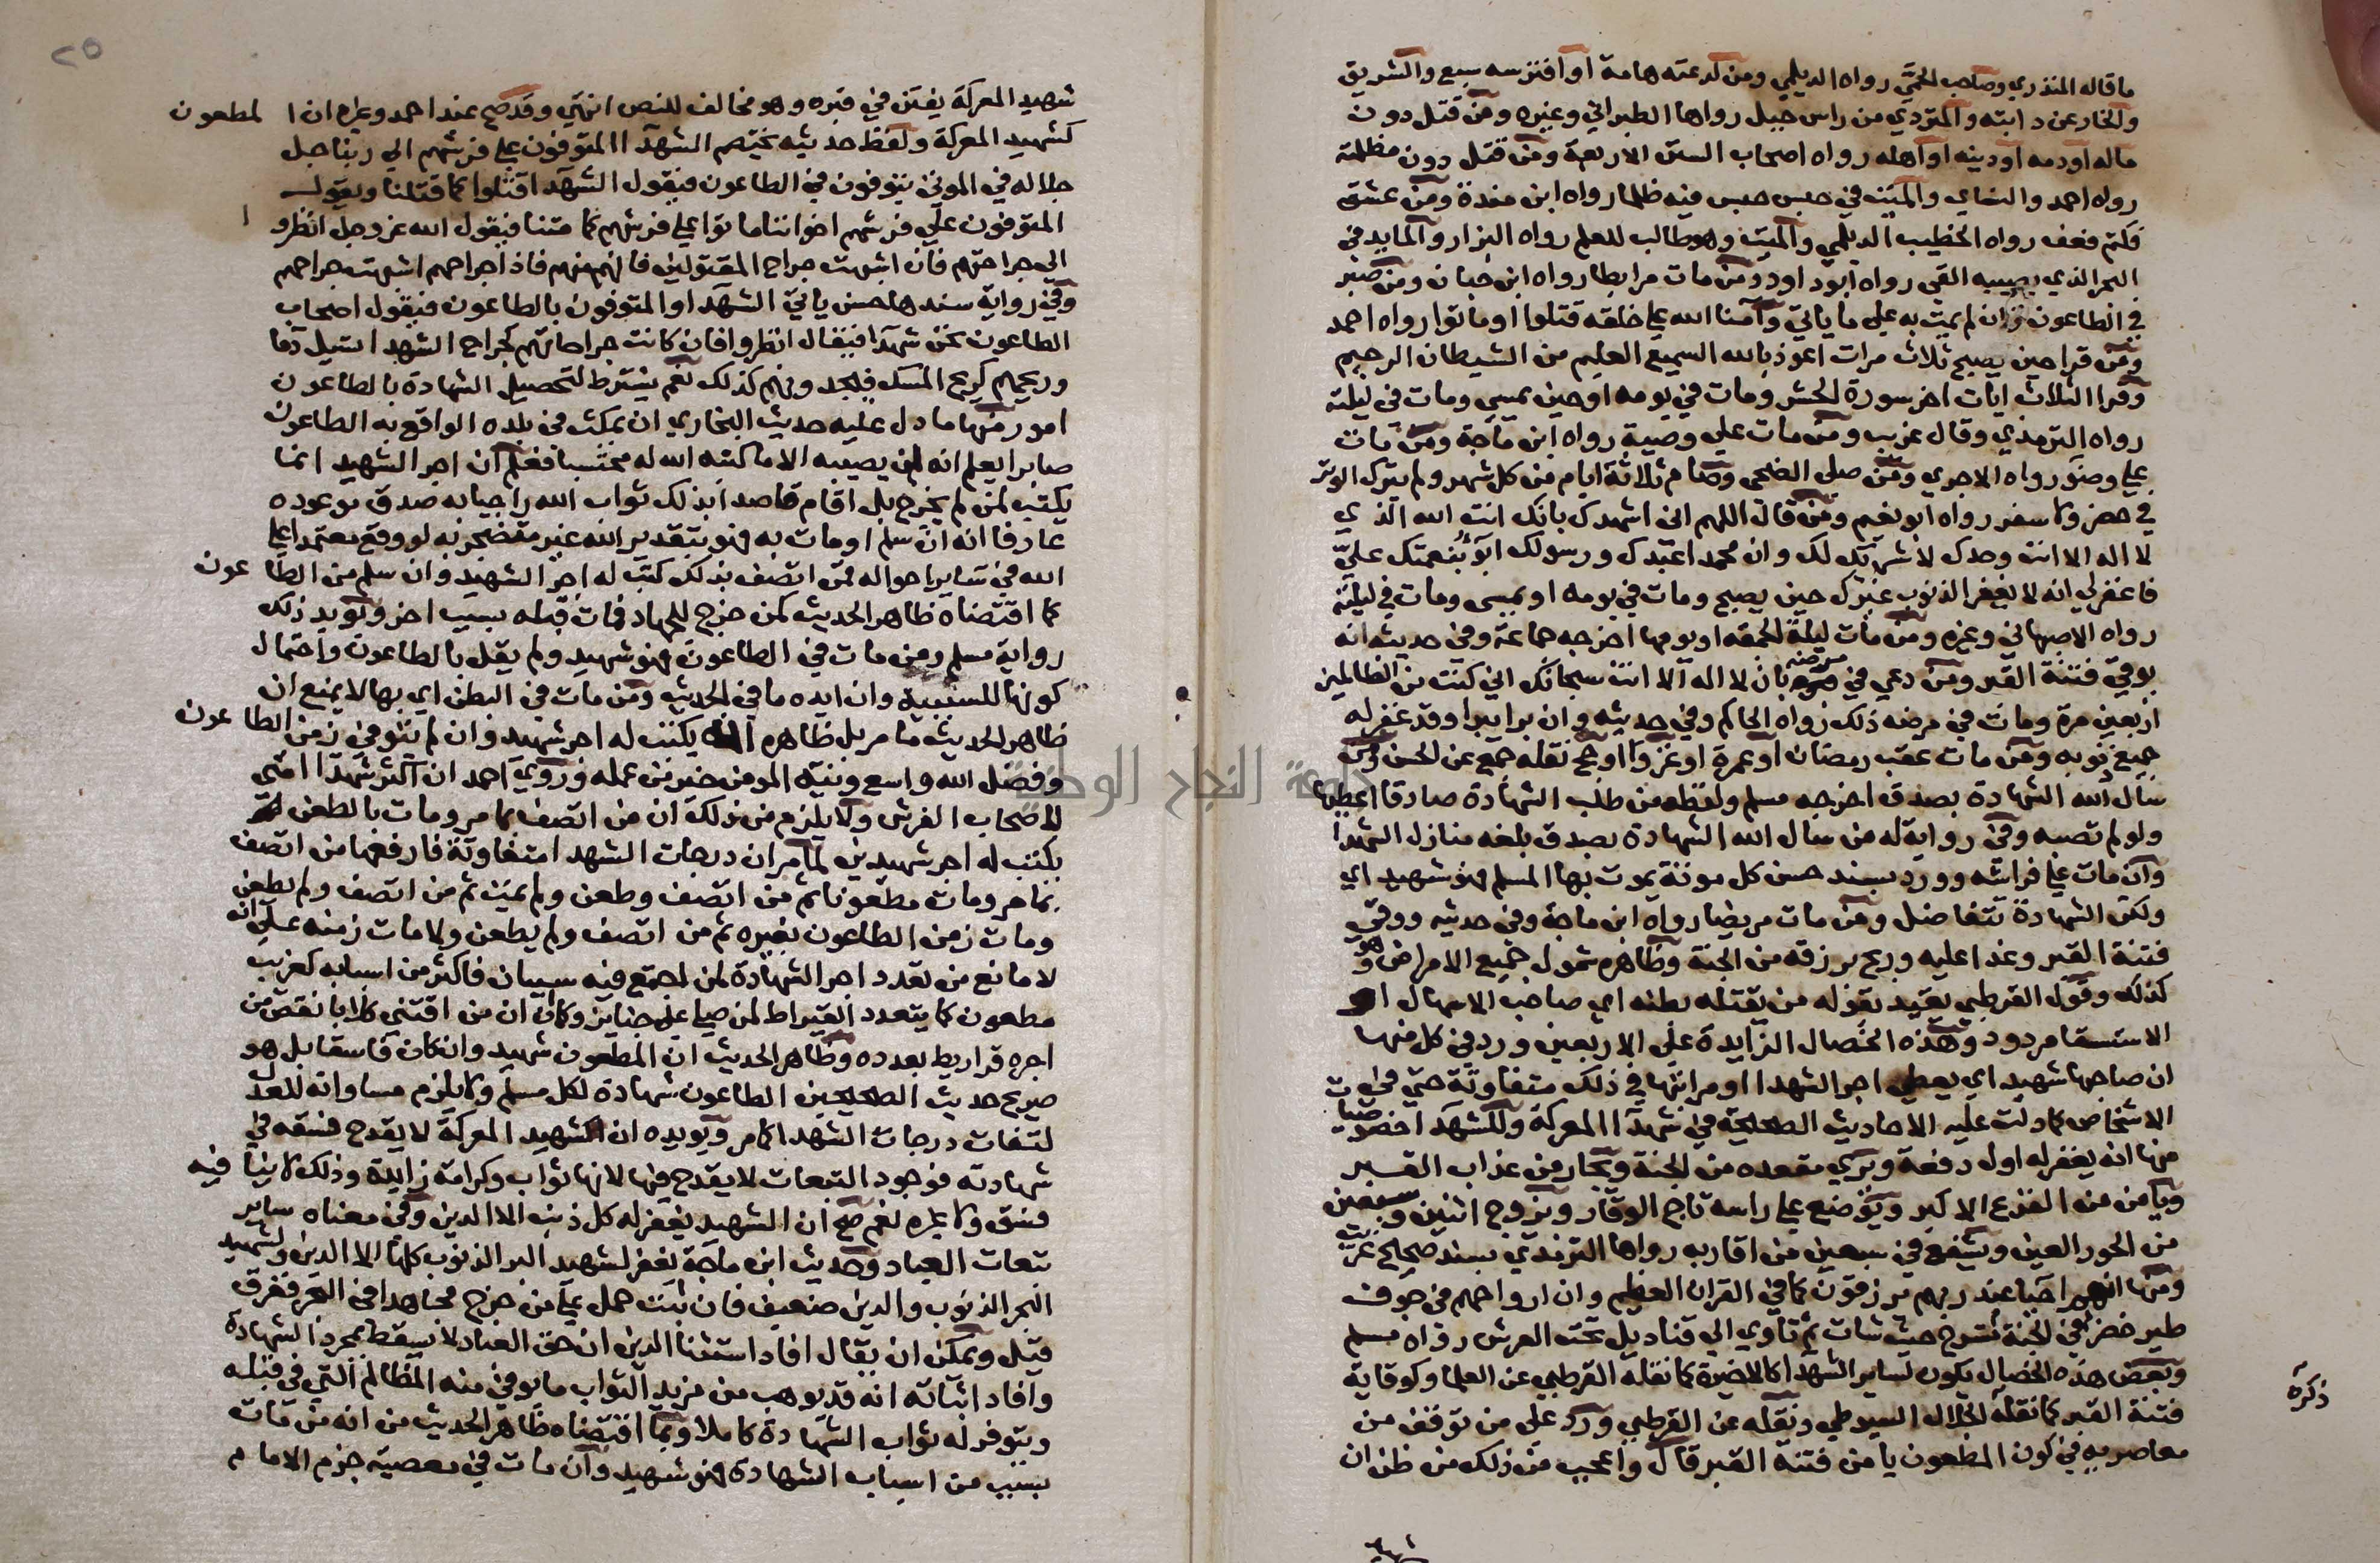 ما قاله المنذري وصاحب الحمى رواه الديلمي ومن لدغته هامة او افترسه سبع والشريق
والخار عن دابته والمتردي من راس جبل رواها الطبراني وغيره ومن قتل دون
ماله او دمه او دينه او اهله رواه اصحاب السنن الاربعة ومن قتل دون مظلمة
رواه احمد والنساي والميت في حبس حبس فيه ظلما رواه ابن مندة ومن عشق
فكتم فعف رواه الخطيب الديلمي والميت وهو طالب للعلم رواه البزار والمايد في
البحر الذي يصيبه القى رواه ابو داود ومن مات مرابطا رواه ابن حبان ومن صبر
في الطاعون وان لم يمت به على ما ياتي وآمنا الله على خلقه قتلوا او ماتوا رواه احمد
ومن قرا حين يصبح ثلاث مرات اعوذ بالله السميع العليم من الشيطان الرجيم
وقرا الثلاث ايات اخر سورة الحشر ومات في يومه او حين يمسي ومات في ليلته
رواه الترمذي وقال غريب ومن مات على وصية رواه ابن ماجة ومن مات
على وضو رواه الاجري ومن صلى الضحى وصام ثلاثة ايام من كل شهر ولم يترك الوتر
في حضر ولا سفر رواه ابو نعيم ومن قال اللهم انى اشهدك بانك انت الله الذي
لا اله الا انت وحدك لا شريك لك وان محمدا عبدك ورسولك ابوُ بنعمتك عليّ
فاغفر لي انه لا يغفر الذنوب غيرك حين يصبح ومات في يومه او يمسي ومات في ليلته
رواه الاصبهاني وغيره ومن مات ليلة الجمعة او يومها اخرجه جماعة وفي حديثه انه
يوقيّ فتنة القبر ومن دعي في مرضه بان لا اله الا انت سبحانك اني كنت من الظالمين
اربعين مرة ومات في مرضه ذلك رواه الحاكم وفي حديثه وان برا برا وقد غفر له
جميع ذنوبه ومن مات عقب رمضان او عمرة او غزو او حج نقله جمع عن الحسن ومن
سال الله الشهادة بصدق اخرجه مسلم ولفظه من طلب الشهادة صادقا اعطيها
ولو لم تصبه وفي رواية له من سال الله الشهادة بصدق بلغه منازل الشهدا
وان مات على فراشه وورد بسند حسن كل موتة يموت بها المسلم فهو شهيد اي
ولكن الشهادة تتفاضل ومن مات مريضا رواه ابن ماجة وفي حديثه ووقي
فتنة القبر وغذا عليه وريح برزقه من الجنة وظاهره شمول جميع الامراض وهو
كذلك وقول القرطبي يقيد بقوله من يقتله بطنه اي صاحب الاسهال او
الاستسقا مردود وهذه الخصال الزايدة على الاربعين ورد في كل منها
ان صاحبها شهيد اي يعطى اجر الشهدا او مراتبها في ذلك متفاوتة حتى في ذوات
الاشخاص كما دلت عليه الاحاديث الصحيحة في شهدا المعركة وللشهدا خصوصيات
منها انه يغفر له اول دفعة ويرى مقعده من الجنة ويجار من عذاب القبر
ويامن من الفزع الاكبر ويوضع على راسه تاج الوقار ويزوج اثنين وسبعين
من الحور العين ويشفع في سبعين من اقاربه رواها الترمذي بسند صحيح غريب
ومنها انهم احيا عند ربهم يرزقون كما في القران العظيم وان ارواحهم في جوف
طير خضر في الجنة تسرح حيث شات ثم تاوي الى قناديل تحت العرش رواه مسلم
وبعض هذه الخصال يكون لساير الشهدا كالاخيرة كما نقله القرطبي عن العلما وكوقاية
ذكره
فتنة القبر كما نقله الجلال السيوطي ونقله عن القرطبي ورد على من توقف من
معاصريه في كون المطعون يامن فتنة القبر قال واعجب من ذلك من ظن ان
شهيد
٢٥
شهيد المعركة يفتن في قبره وهو مخالف للنص انتهى وقد صح عند احمد وغيره ان المطعون
كشهيد المعركة ولفظ حديثه يختصم الشهدا المتوفون على فرشهم الي ربنا جل
جلاله في الموتى يتوفون في الطاعون فيقول الشهدا قتلوا كما قتلنا ويقول
المتوفون على فرشهم اخواننا ماتوا على فرشهم كما متنا فيقول الله عز وجل انظروا
الى جراحتهم فان اشبهت جراح المقتولين فانهم منهم فاذا جراحهم اشبهت جراحهم
وفي رواية سندها حسن ياتي الشهدا والمتوفون بالطاعون فيقول اصحاب
الطاعون نحن شهدا فيقال انظروا فان كانت جراحاتهم كجراح الشهدا تسيل دما
وريحهم كريح المسك فيجدونهم كذلك نعم يشترط لتحصيل الشهادة بالطاعون
امور منها ما دل عليه حديث البخاري ان يمكث في بلده الواقع به الطاعون
صابرا يعلم انه لن يصيبه الا ما كتبه الله له محتسبا فعلم ان اجر الشهيد انما
يكتب لمن لم يخرج بل اقام قاصدا بذلك ثواب الله راجيا به صدق موعوده
عارفا انه ان سلم او مات به فهو بتقدير الله غير متضجر به لو وقع معتمدا على
الله في ساير احواله فمن اتصف بذلك كتب له اجر الشهيد وان سلم من الطاعون
كما اقتضاه ظاهر الحديث كمن خرج للجهاد فمات قبله بسبب اخر ويويد ذلك
رواية مسلم ومن مات في الطاعون فهو شهيد ولم يقل بالطاعون واحتمال
كونها للسببية وان ايده ما في الحديث ومن مات في البطن اي بها لا يمنع ان
ظاهر الحديث ما مر بل ظاهره انه يكتب له اجر شهيد وان لم يتوفى زمن الطاعون
وفضل الله واسع ونية المومن خير من عمله وروي احمد ان اكثر شهدا امتي
لاصحاب الفرش ولا يلزم من ذلك ان من اتصف بما مر ومات بالطعن
يكتب له اجر شهيدين لما مر ان درجات الشهدا متفاوتة فارفعها من اتصف
بما مر ومات مطعونا ثم من اتصف وطعن ولم يمت ثم من اتصف ولم يطعن
ومات زمن الطاعون بغيره ثم من اتصف ولم يطعن ولا مات زمنه على انه
لا مانع من تعدد اجر الشهادة لمن اجتمع فيه سببان فاكثر من اسبابه كغريب
مطعون كما يتعدد القيراط لمن صلى على جنايز وكما ان من اقتنى كلابا نقص من
اجره قراريط بعدده وظاهر الحديث ان المطعون شهيد وان كان فاسقا بل هو
صريح حديث الصحيحين الطاعون شهادة لكل مسلم ولا يلزم مساواته للعدل
لتفات درجات الشهدا كما مر ويويده ان شهيد المعركة لا يقدح فسقه في
شهادته فوجود التبعات لا يقدح فيها لانها ثواب وكرامة زايدة وذلك لا ينافيه
فسق ولا غيره نعم صح ان الشهيد يغفر له كل ذنب الا الدين وفي معناه ساير
تبعات العباد وحديث ابن ماجة يغفر لشهيد البر الذنوب كلها الا الدين ولشهيد
البحر الذنوب والدين ضعيف فان ثبت حمل على من خرج مجاهدا في البحر فغرق
قتيل ويمكن ان يقال افاد استثنا الدين ان حق العباد لا يسقط بمجرد الشهادة
وافاد اثباته انه قد يوهب من مزيد الثواب ما يوفي منه المظالم التي في قبله
ويتوفر له ثواب الشهادة كاملا وبما اقتضاه ظاهر الحديث من انه من مات
بسبب من اسباب الشهادة فهو شهيد وان مات في معصية جزم الامام
جامعة النجاح الوطنية